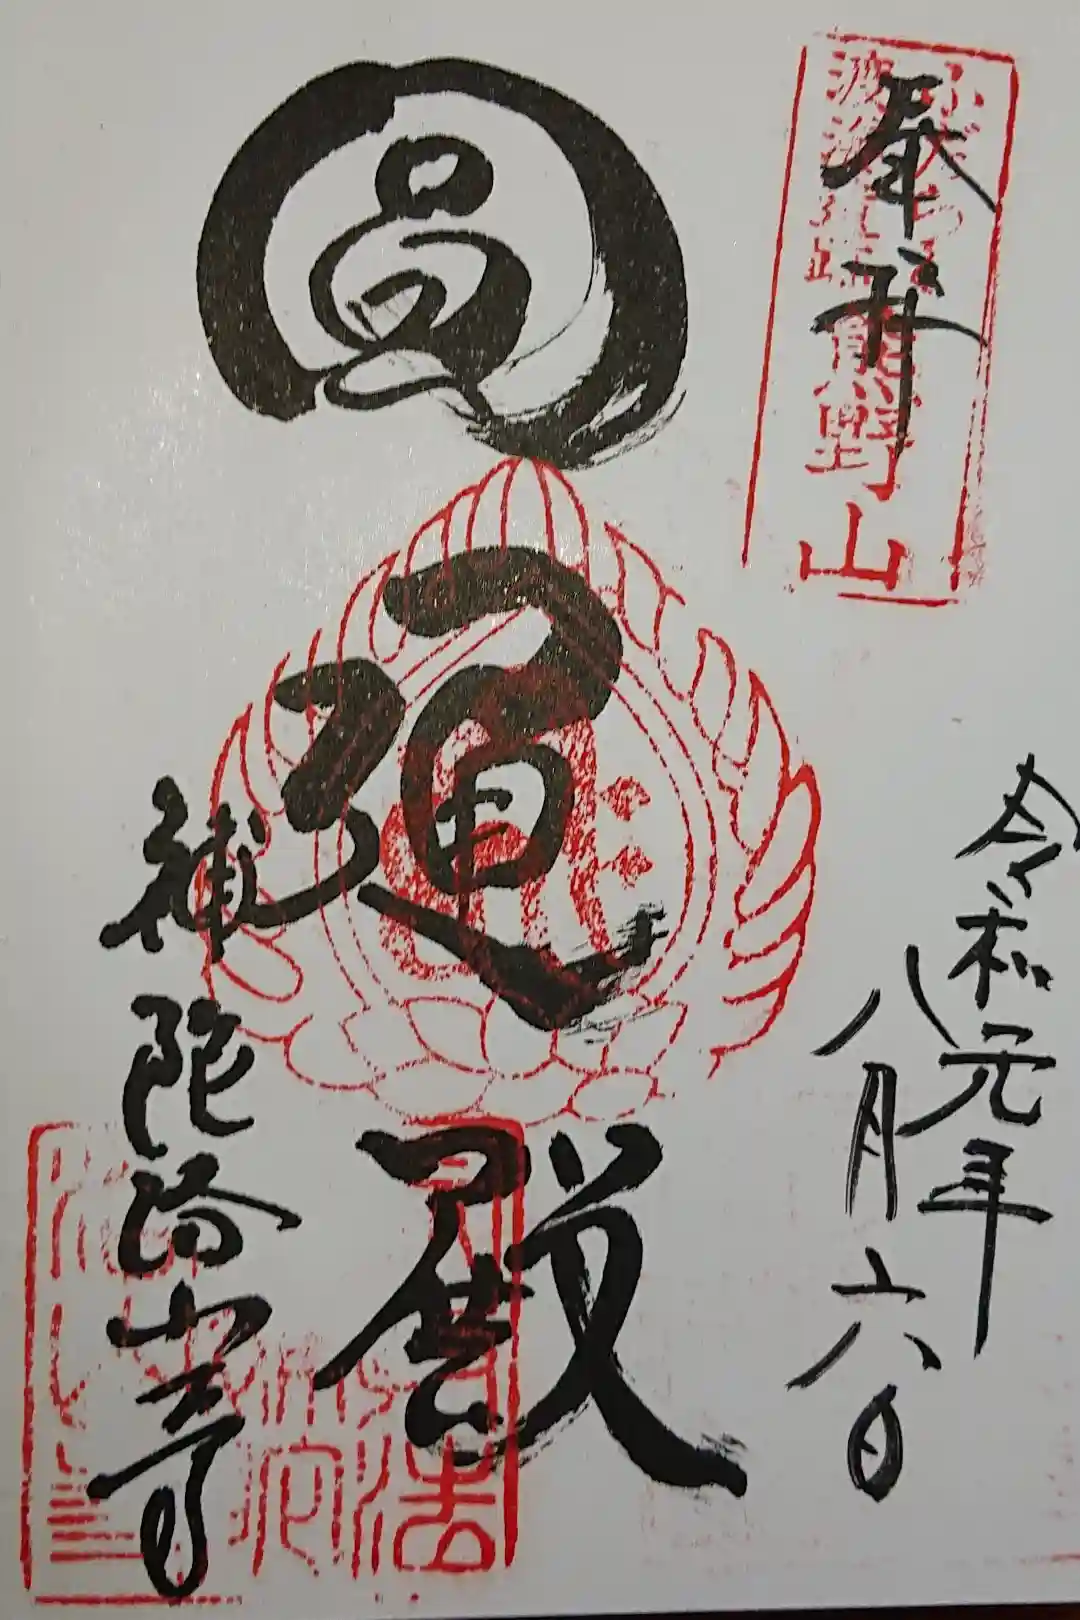 奉拝
熊野山
令和元年
八月六日
圓通殿
補陀洛山寺